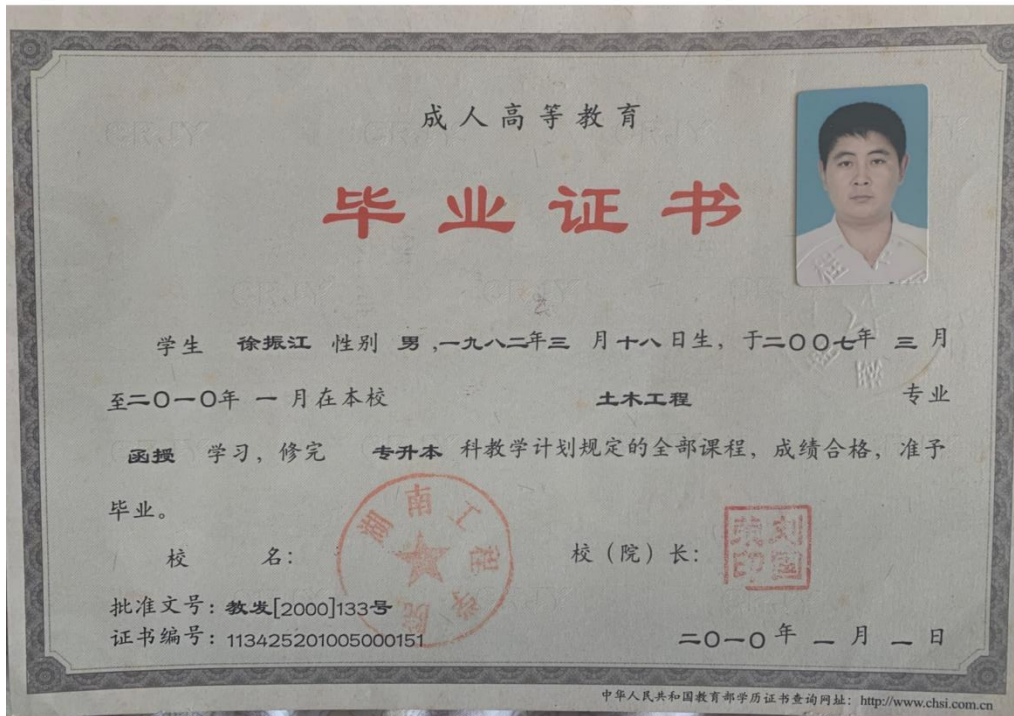 成人高等教育
毕业证书
学生 徐振江 性别 男,一九八二年三 月十八日生，于二〇〇七年 三月
至二〇一〇年 一 月在本校 土木工程 专业
函授 学习，修完 专升本 科教学计划规定的全部课程，成绩合格，准予
毕业。
湖南工程学院
校 名： 校（院）长：
批准文号：教发[2000]133号
证书编号：113425201005000151
二〇一〇年 一 月 一 日
中华人民共和国教育部学历证书查询网址：http://www.chsi.com.cn